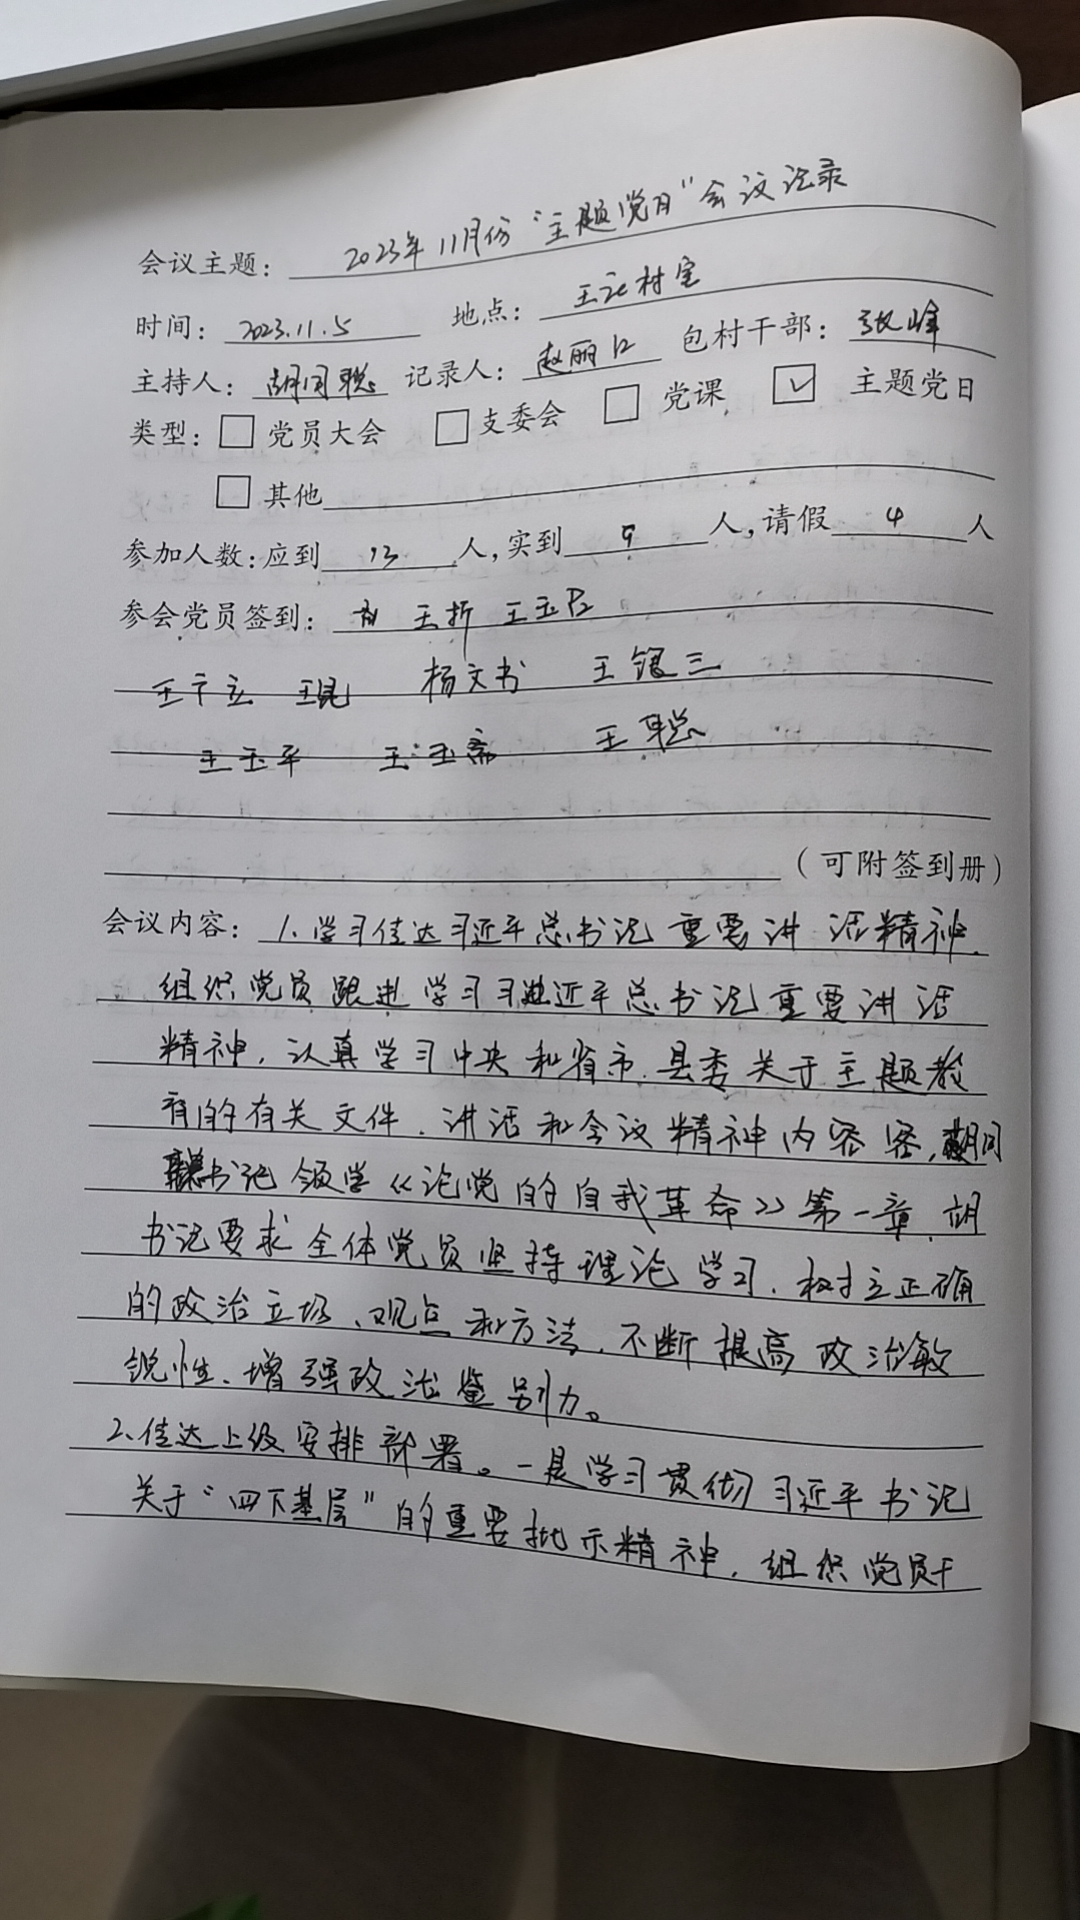 会议主题：2023年11月份“主题党日”会议记录
时间：2023.11.5 地点：王 村室
主持人：胡同聪 记录人：赵丽 包村干部：张峰
类型：□党员大会 □支委会 □党课 ☑主题党日
□其他
参加人数：应到13人，实到9人，请假4人
参会党员签到：王折 王玉
王 立 王昆 杨文书 王银三
王玉平 王玉斋 王聪
（可附签到册）
会议内容：1.学习传达习近平总书记重要讲话精神.
组织党员跟进学习习近平总书记重要讲话
精神，认真学习中央和省市.县委关于主题教
育的有关文件.讲话和会议精神内容容，胡同
聪书记领学《论党的自我革命》第一章.胡
书记要求全体党员坚持理论学习.树立正确
的政治立场、观点和方法.不断提高政治敏
锐性、增强政治鉴别力。
2、传达上级安排部署。一是学习贯彻习近平书记
关于“四下基层”的重要批示精神.组织党员干